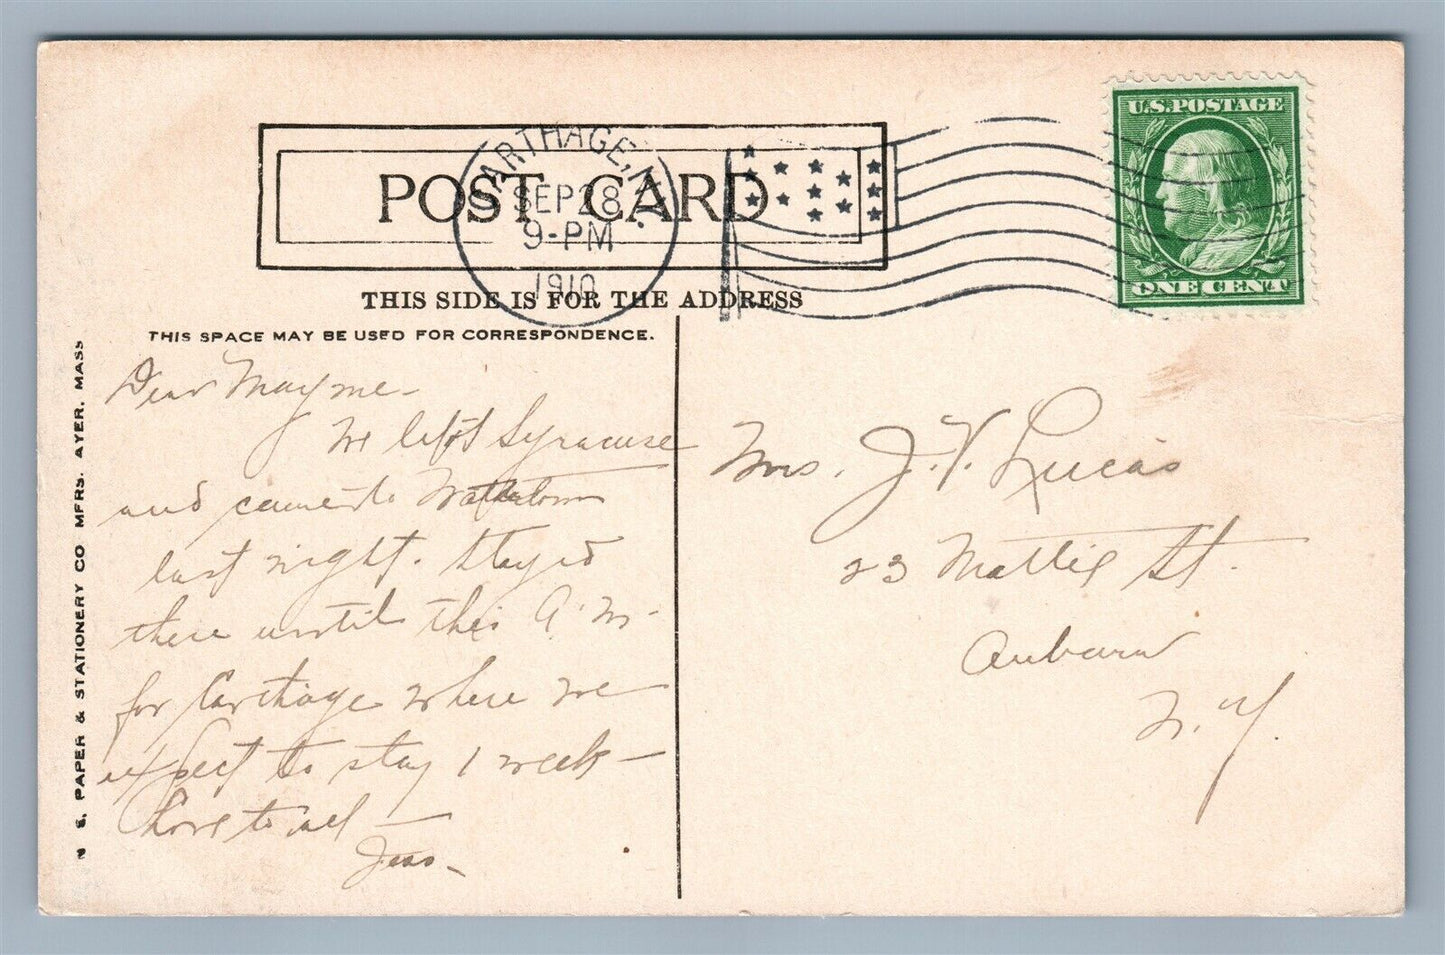 POST CARD
CARTHAGE, N.Y.
SEP 28
9-PM
1910
U.S. POSTAGE
ONE CENT
THIS SIDE IS FOR THE ADDRESS
THIS SPACE MAY BE USED FOR CORRESPONDENCE.
Dear Mayme -
We left Syracuse
and came to Watertown
last night. Stayed
there until this A.M.
for Carthage where we
expect to stay 1 week -
Love to all -
Jess -
Mrs. J. V. Lucas
23 Mattie St.
Auburn
N.Y.
N. E. PAPER & STATIONERY CO MFRS. AYER. MASS